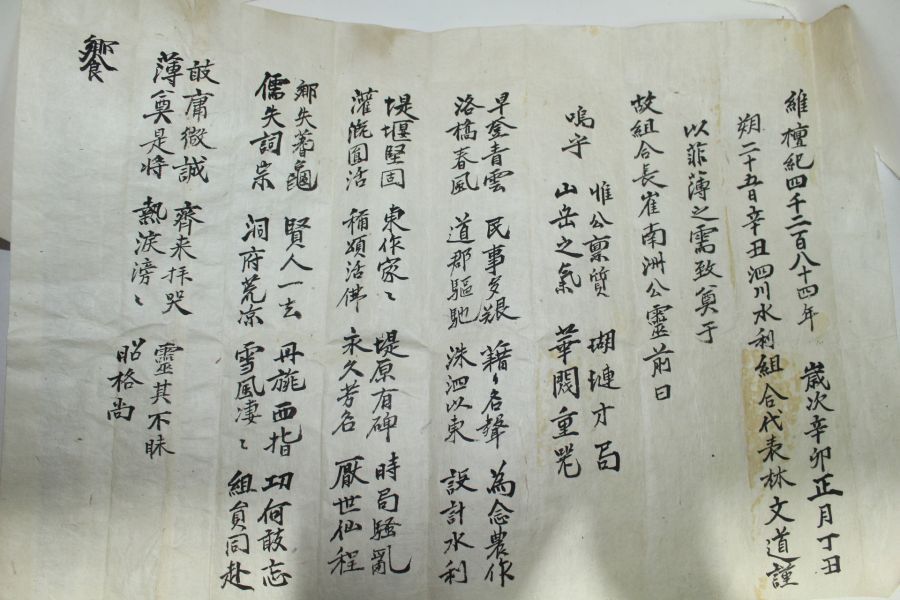 維檀紀四千二百八十四年 歲次辛卯正月丁丑
朔二十五日辛丑泗川水利組合代表林文道謹
以菲薄之需致奠于
故組合長崔南洲公靈前曰
惟公稟質 瑚璉才局
嗚乎 山岳之氣 華閥重望
早登青雲 民事多艱 籍々名聲 為念農作
洛橋春風 道郡驅馳 洙泗以東 設計水利
堤堰堅固 東作家々 堤原有碑 時局騷亂
灌漑圓活 稱頌活佛 永久芳名 厭世仙程
鄉失蓍龜 賢人一去 丹旐西指 功何敢忘
儒失詞宗 洞府荒凉 雪風凄々 組員同赴
敢庸微誠 齊来拝哭 靈其不昧
薄奠是將 熱淚滂々 昭格尚
饗